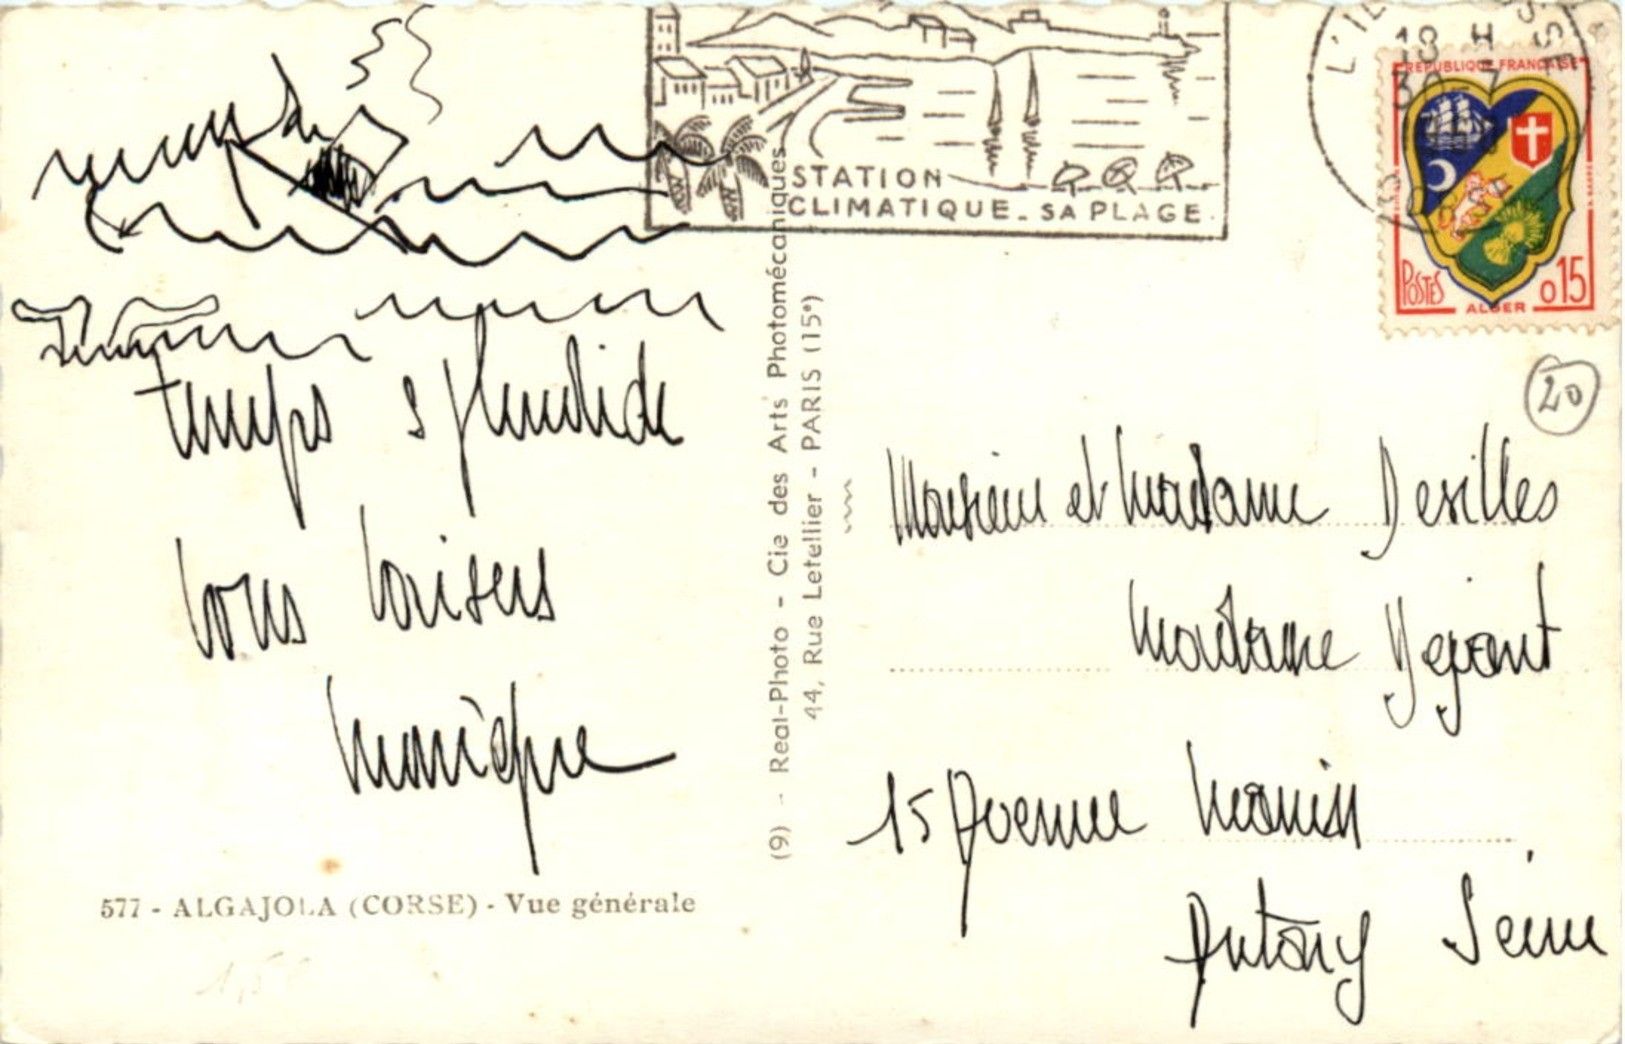 temps splendide
bons baisers
Monique
577 - ALGAJOLA (CORSE) - Vue générale
(9) - Real-Photo - Cie des Arts Photomécaniques
44, Rue Letellier - PARIS (15e)
STATION
CLIMATIQUE - SA PLAGE
L'IL
18 H
30 - 7
REPUBLIQUE FRANÇAISE
POSTES
ALGER
0,15
20
Monsieur et Madame Desilles
Madame
15 Avenue
Antony Seine